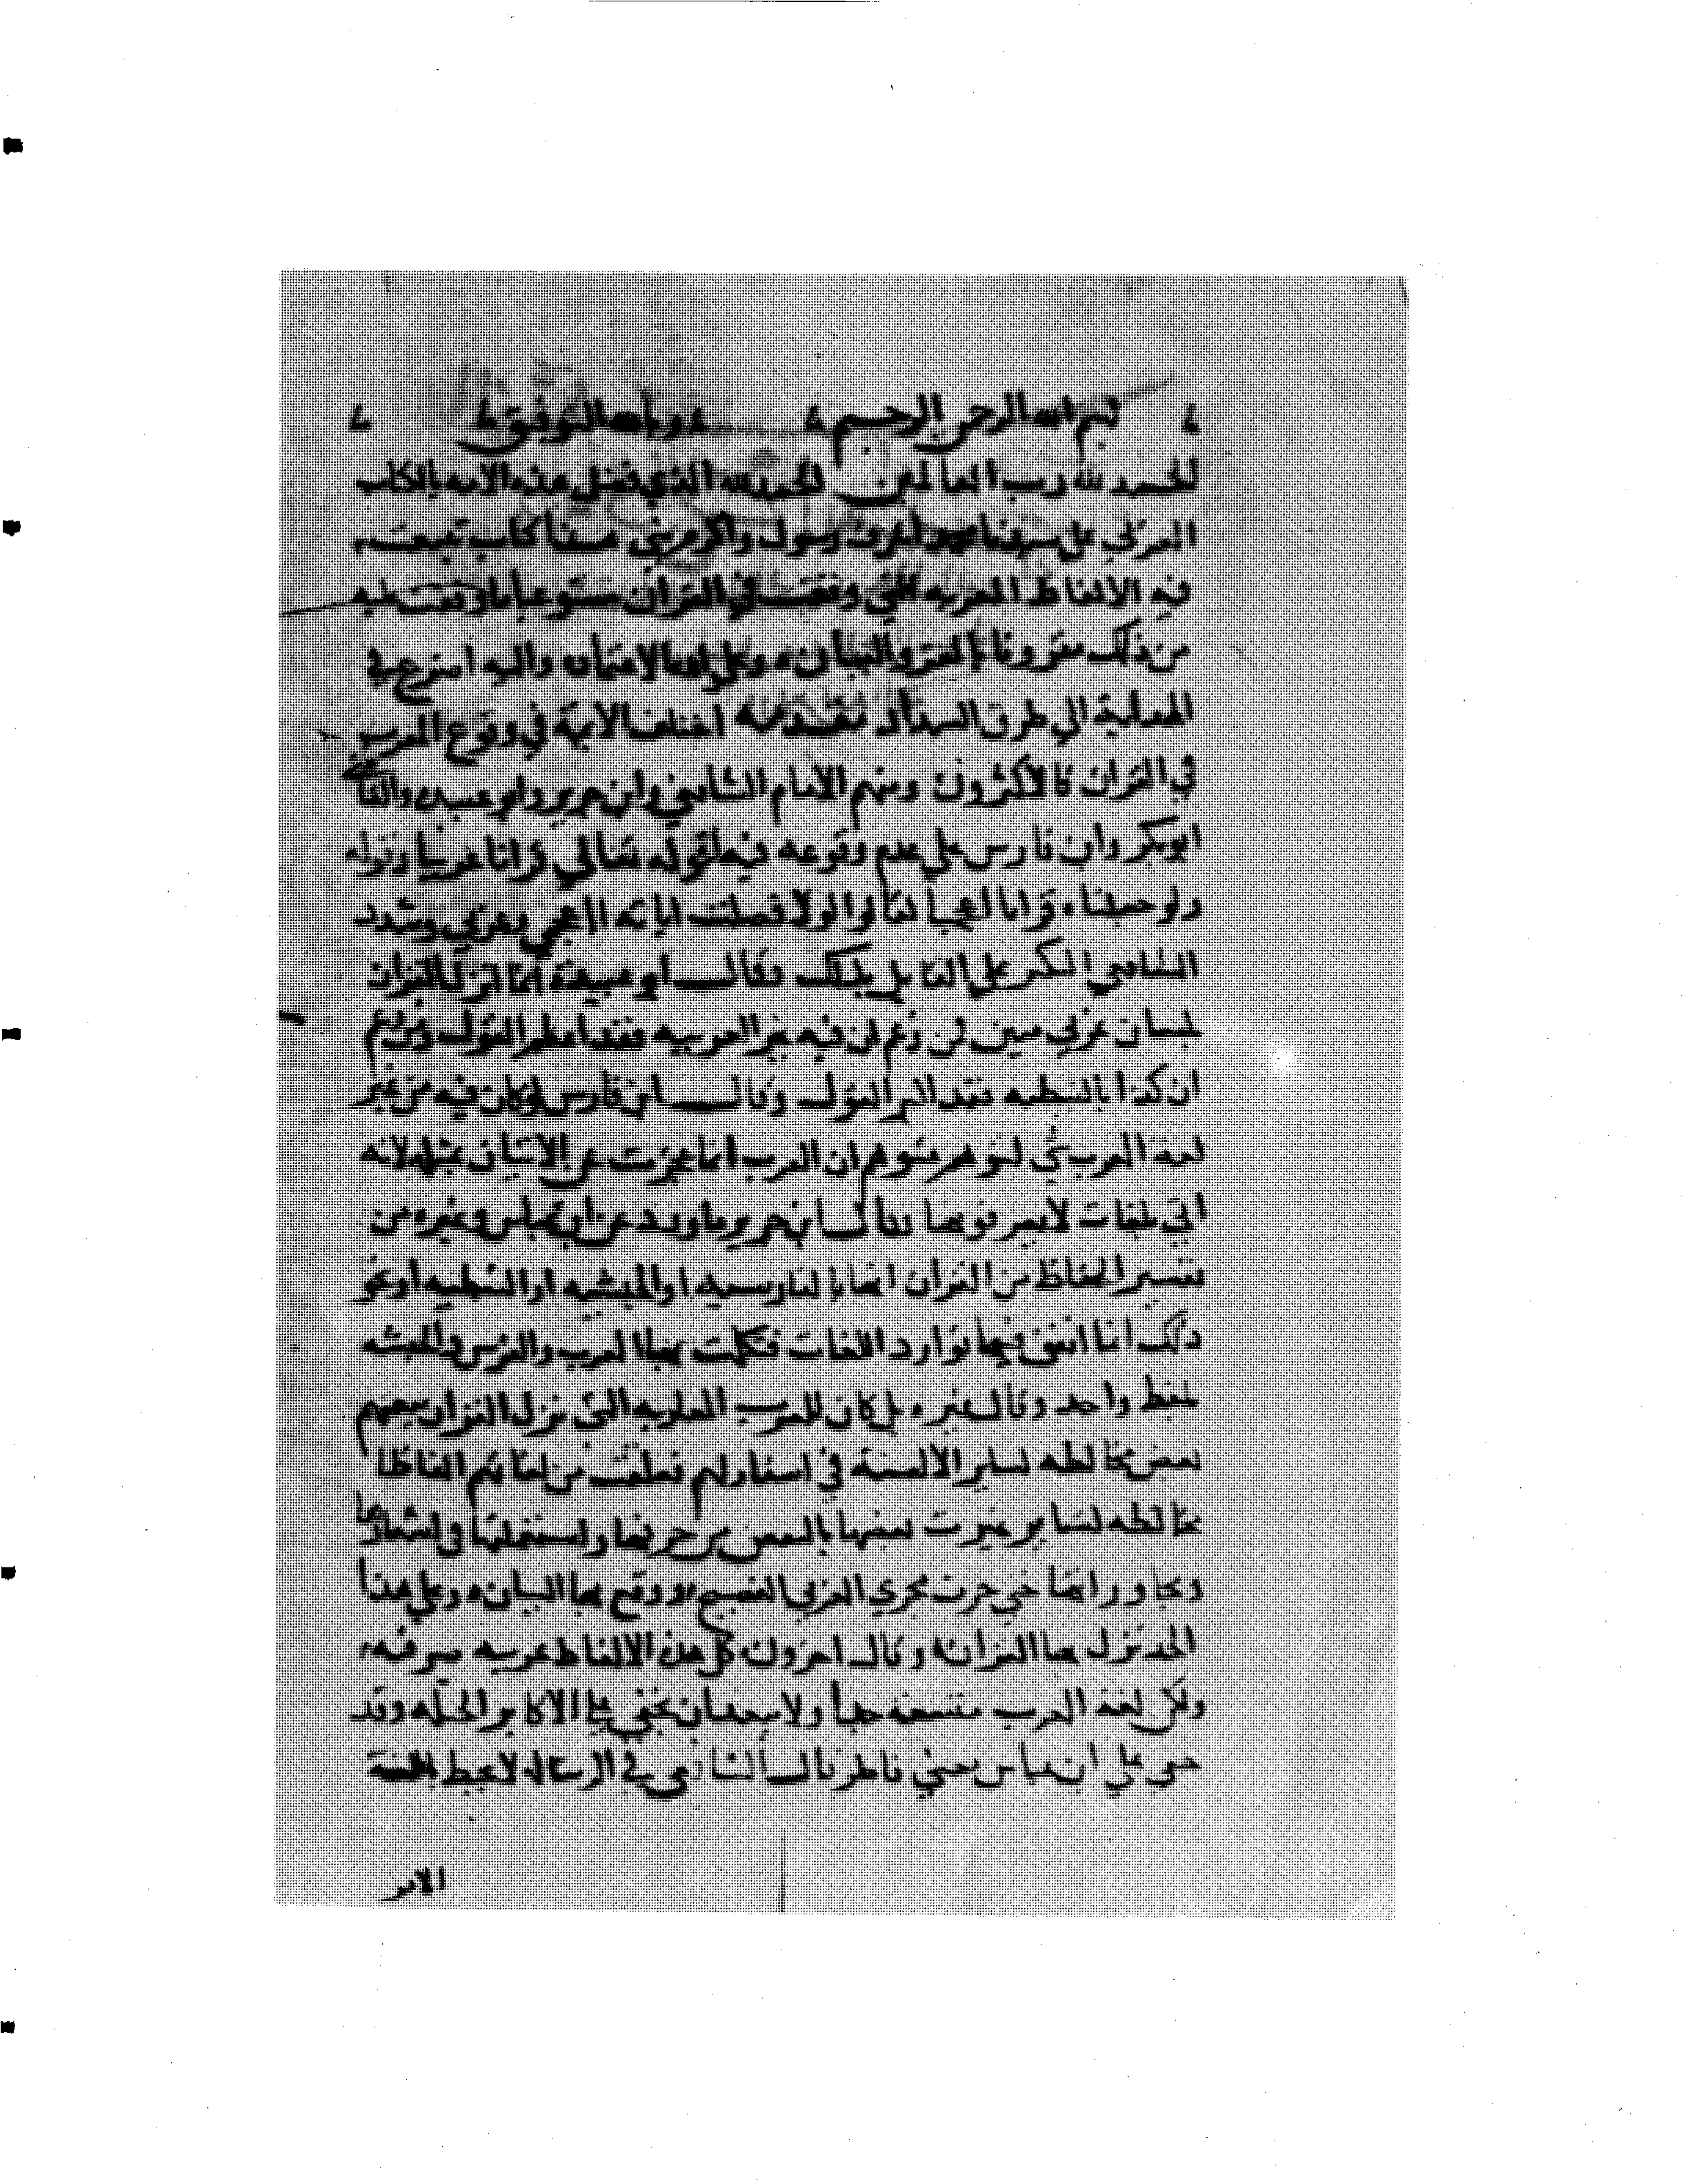 بسم الله الرحمن الرحيم وبالله التوفيق
الحمد لله رب العالمين الحمد لله الذي فضل هذه الامه بالكتاب
العربي على رسول واكرم نبي هذا كتاب تتبعت
فيه الالفاظ المعربه التي وقعت في القران مستوعبا ما وقفت عليه
من ذلك مقرونا بالعزو والبيان وعلى الله الاعتماد واليه اضرع في
الهداية الي طرق السداد مقدمه اختلف الايمة في وقوع المعرب
في القران فالاكثرون ومنهم الامام الشافعي وابن جرير وابو عبيده والقاضي
ابوبكر وابن فارس علي عدم وقوعه فيه لقوله تعالي قرانا عربيا وقوله
ولو جعلناه قرانا اعجميا لقالوا لولا فصلت اياته ااعجمي وعربي وشدد
الشافعي النكير على القايل بذلك وقال ابو عبيدة انما انزل القران
بلسان عربي مبين فمن زعم ان فيه غير العربيه فقد اعظم القول ومن زعم
ان كذا بالنبطيه فقد اكبر القول وقال ابن فارس لو كان فيه من غير
لغة العرب شي لتوهم متوهم ان العرب انما عجزت عن الاتيان بمثله لانه
اتي بلغات لا يعرفونها وقال ابن جرير ما ورد عن ابن عباس وغيره من
تفسير الفاظ من القران انها بالفارسيه او الحبشيه او النبطيه او نحو
ذلك انما اتفق فيها توارد اللغات فتكلمت بها العرب والفرس والحبشه
بلفظ واحد وقال غيره بل كان للعرب العاربه التي نزل القران بلغتهم
بعض مخالطه لساير الالسنة في اسفارهم فعلقت من لغاتهم الفاظا
غيرت بعضها بالنقص من حروفها واستعملتها في اشعارها
ومحاوراتها حتي جرت مجري العربي الفصيح ووقع بها البيان وعلى هذا
الحد نزل بها القران وقال اخرون كل هذه الالفاظ عربيه صرفه
ولكن لغة العرب متسعة جدا ولا يبعد ان تخفي علي الاكابر الجله وقد
خفي علي ابن عباس معني فاطر قال الشافعي في الرساله لا يحيط باللغة
الا نبي